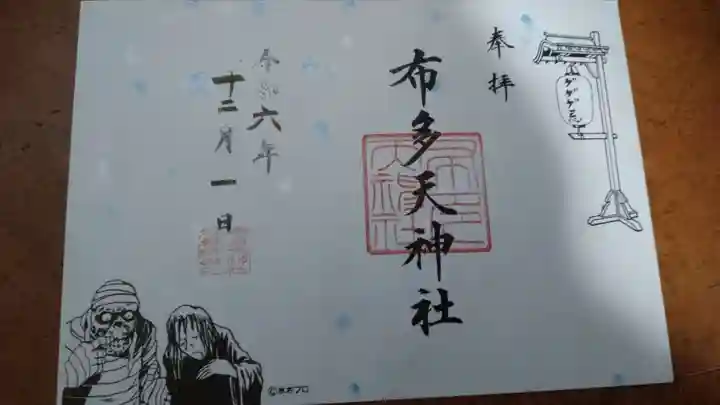 奉拝
ゲゲゲ忌
布多天神社
令和六年
十二月一日
©水木プロ